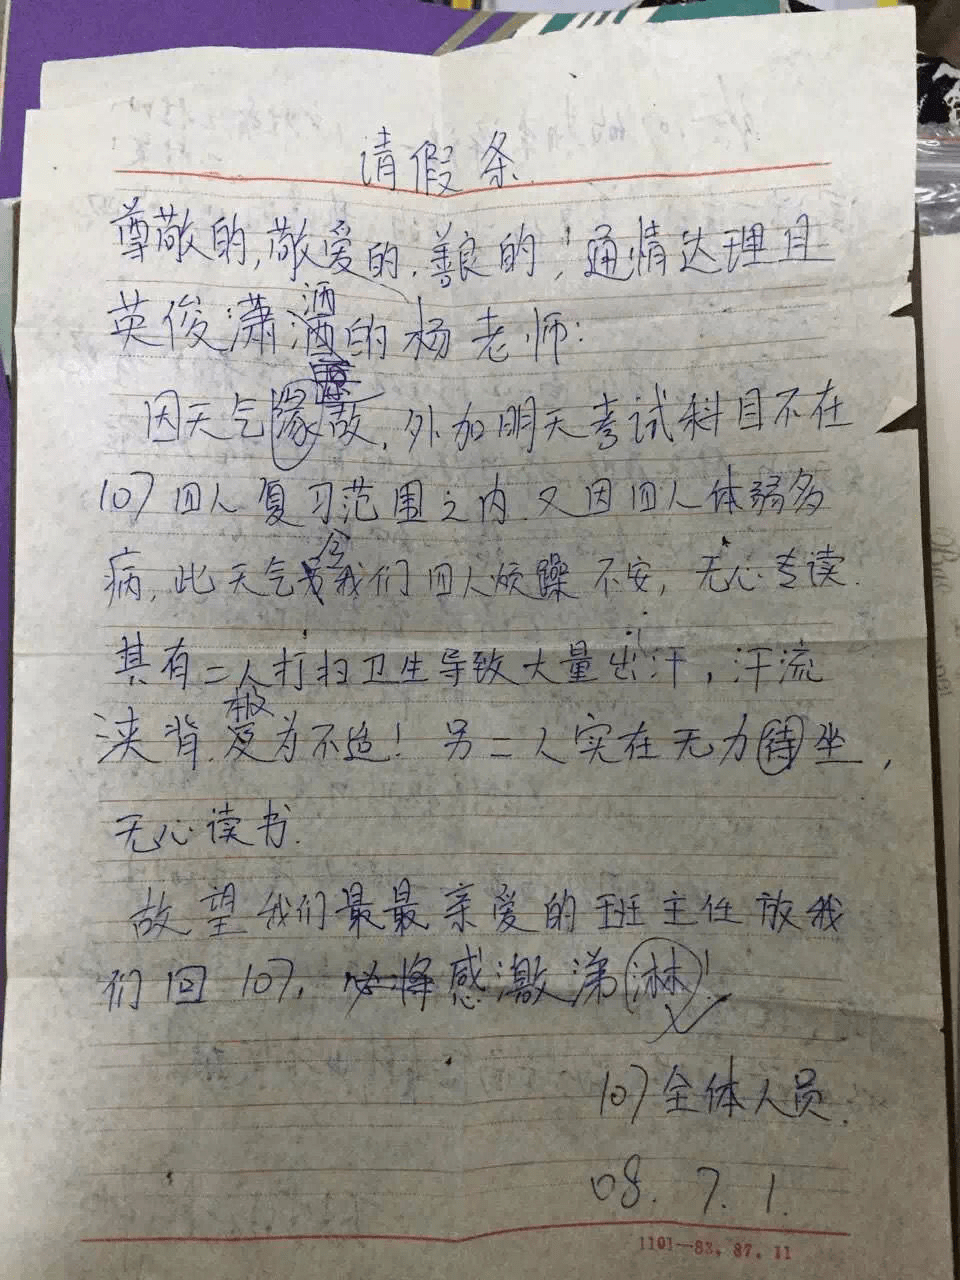 请假条
尊敬的,敬爱的,善良的,通情达理且
洒
英俊潇洒的杨老师:
因天气缘故,外加明天考试科目不在
107四人复习范围之内.又因四人体弱多
病,此天气令我们四人烦躁不安,无心专读.
其有二人打扫卫生导致大量出汗,汗流
浃背.极为不适!另二人实在无力待坐,
无心读书.
故望我们最最亲爱的班主任放我
们回107,必将感激涕淋!
107全体人员.
08.7.1.
1101—83,87.11